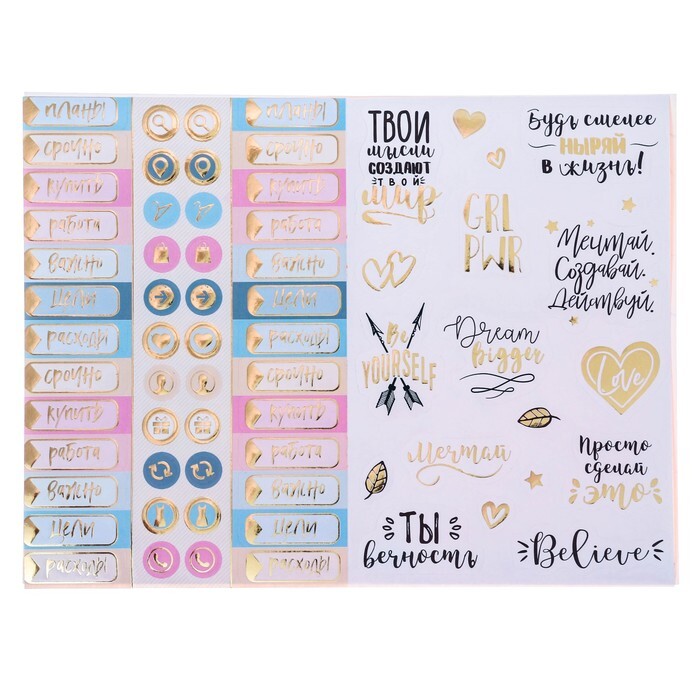 планы
срочно
купить
работа
важно
цели
расходы
срочно
купить
работа
важно
цели
расходы
планы
срочно
купить
работа
важно
цели
расходы
срочно
купить
работа
важно
цели
расходы
ТВОИ
мысли
СОЗДАЮТ
ТВОЙ
мир
GRL
PWR
Будь смелее
НЫРЯЙ
в жизнь!
Мечтай.
Создавай.
Действуй.
Be
YOURSELF
Dream
bigger
Love
Мечтай
Просто
сделай
это
ТЫ
вечность
Believe